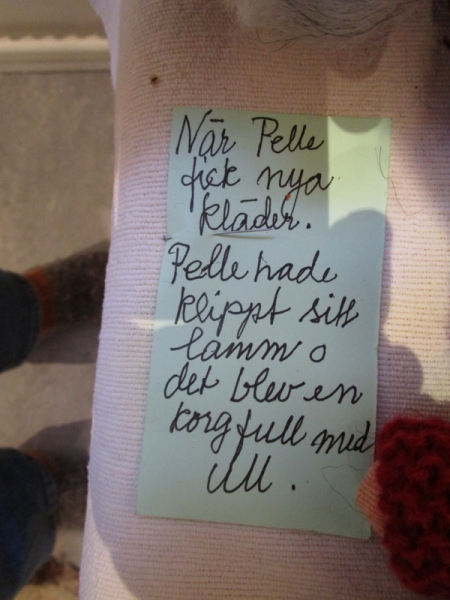 När Pelle
fick nya
kläder.
Pelle hade
klippt sitt
lamm o
det blev en
korg full med
ull.